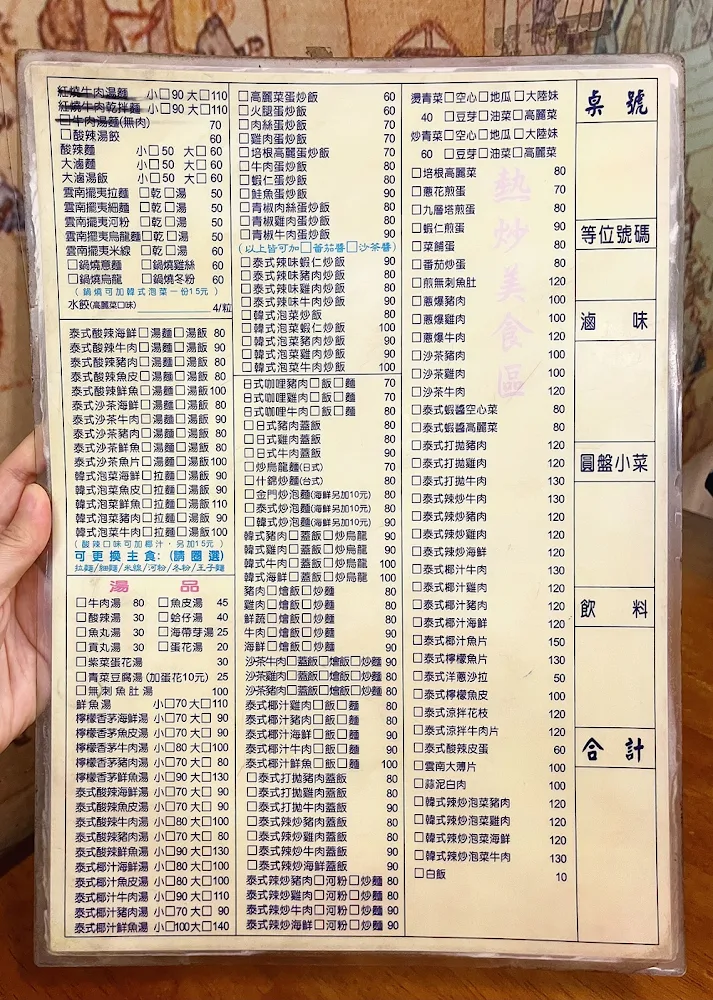 紅燒牛肉湯麵 小□90 大□110
紅燒牛肉乾拌麵 小□90 大□110
□牛肉湯麵(無肉) 70
□酸辣湯餃 60
酸辣麵 小□50 大□60
大滷麵 小□50 大□60
大滷湯飯 小□50 大□60
雲南擺夷拉麵 □乾□湯 50
雲南擺夷細麵 □乾□湯 50
雲南擺夷河粉 □乾□湯 50
雲南擺夷烏龍麵□乾□湯 50
雲南擺夷米線 □乾□湯 60
□鍋燒意麵 □鍋燒雞絲 60
□鍋燒烏龍 □鍋燒冬粉 60
(鍋燒可加韓式泡菜一份15元)
水餃(高麗菜口味) 4/粒
泰式酸辣海鮮□湯麵□湯飯 80
泰式酸辣牛肉□湯麵□湯飯 90
泰式酸辣豬肉□湯麵□湯飯 80
泰式酸辣魚皮□湯麵□湯飯 80
泰式酸辣鮮魚□湯麵□湯飯100
泰式沙茶海鮮□湯麵□湯飯 80
泰式沙茶牛肉□湯麵□湯飯 90
泰式沙茶豬肉□湯麵□湯飯 80
泰式沙茶鮮魚□湯麵□湯飯 80
泰式沙茶魚片□湯麵□湯飯100
韓式泡菜海鮮□拉麵□湯飯 90
韓式泡菜魚皮□拉麵□湯飯 90
韓式泡菜鮮魚□拉麵□湯飯110
韓式泡菜豬肉□拉麵□湯飯 90
韓式泡菜牛肉□拉麵□湯飯100
(酸辣口味可加椰汁，另加15元)
可更換主食:(請圈選)
拉麵/細麵/米線/河粉/冬粉/王子麵
湯 品
□牛肉湯 80 □魚皮湯 45
□酸辣湯 30 □蛤仔湯 40
□魚丸湯 30 □海帶芽湯 25
□貢丸湯 30 □蛋花湯 20
□紫菜蛋花湯 30
□青菜豆腐湯 (加蛋花10元) 25
□無刺魚肚湯 100
鮮魚湯 小□70 大□110
檸檬香茅海鮮湯 小□70 大□90
檸檬香茅魚皮湯 小□70 大□90
檸檬香茅牛肉湯 小□80 大□100
檸檬香茅豬肉湯 小□70 大□90
檸檬香茅鮮魚湯 小□90 大□130
泰式酸辣海鮮湯 小□70 大□90
泰式酸辣魚皮湯 小□70 大□90
泰式酸辣牛肉湯 小□80 大□100
泰式酸辣豬肉湯 小□70 大□80
泰式酸辣鮮魚湯 小□90 大□130
泰式椰汁海鮮湯 小□80 大□100
泰式椰汁魚皮湯 小□80 大□100
泰式椰汁牛肉湯 小□90 大□110
泰式椰汁豬肉湯 小□70 大□90
泰式椰汁鮮魚湯 小□100大□140
□高麗菜蛋炒飯 60
□火腿蛋炒飯 60
□肉絲蛋炒飯 60
□雞肉蛋炒飯 60
□培根高麗蛋炒飯 80
□牛肉蛋炒飯 80
□蝦仁蛋炒飯 80
□鮭魚蛋炒飯 90
□青椒肉絲蛋炒飯 80
□青椒雞肉蛋炒飯 80
□青椒牛肉蛋炒飯 90
(以上皆可加□番茄醬□沙茶醬)
□泰式辣味蝦仁炒飯 90
□泰式辣味豬肉炒飯 80
□泰式辣味雞肉炒飯 80
□泰式辣味牛肉炒飯 90
□韓式泡菜炒飯 80
□韓式泡菜蝦仁炒飯 100
□韓式泡菜豬肉炒飯 90
□韓式泡菜雞肉炒飯 90
□韓式泡菜牛肉炒飯 100
日式咖哩豬肉□飯□麵 70
日式咖哩雞肉□飯□麵 70
日式咖哩牛肉□飯□麵 80
□日式豬肉蓋飯 80
□日式雞肉蓋飯 80
□日式牛肉蓋飯 90
□炒烏龍麵(日式) 70
□什錦炒麵(台式) 80
□金門炒泡麵(海鮮另加10元) 80
□泰式炒泡麵(海鮮另加10元) 80
□韓式炒泡麵(海鮮另加10元) 90
韓式豬肉□蓋飯□炒烏龍 90
韓式雞肉□蓋飯□炒烏龍 90
韓式牛肉□蓋飯□炒烏龍 100
韓式海鮮□蓋飯□炒烏龍 100
豬肉□燴飯□炒麵 80
雞肉□燴飯□炒麵 80
鮮蔬□燴飯□炒麵 80
牛肉□燴飯□炒麵 90
海鮮□燴飯□炒麵 90
沙茶牛肉□蓋飯□燴飯□炒麵 90
沙茶雞肉□蓋飯□燴飯□炒麵 80
沙茶豬肉□蓋飯□燴飯□炒麵 80
泰式椰汁雞肉□飯□麵 80
泰式椰汁豬肉□飯□麵 80
泰式椰汁海鮮□飯□麵 90
泰式椰汁牛肉□飯□麵 90
泰式椰汁鮮魚□飯□麵 100
□泰式打拋豬肉蓋飯 80
□泰式打拋雞肉蓋飯 80
□泰式打拋牛肉蓋飯 90
□泰式辣炒豬肉蓋飯 80
□泰式辣炒雞肉蓋飯 80
□泰式辣炒牛肉蓋飯 90
□泰式辣炒海鮮蓋飯 90
泰式辣炒豬肉□河粉□炒麵 80
泰式辣炒雞肉□河粉□炒麵 80
泰式辣炒牛肉□河粉□炒麵 90
泰式辣炒海鮮□河粉□炒麵 90
燙青菜□空心□地瓜□大陸妹
40 □豆芽□油菜□高麗菜
炒青菜□空心□地瓜□大陸妹
60 □豆芽□油菜□高麗菜
□培根高麗菜 80
□蔥花煎蛋 70
□九層塔煎蛋 80
□蝦仁煎蛋 90
□菜脯蛋 80
□番茄炒蛋 80
□煎無刺魚肚 120
□蔥爆豬肉 100
□蔥爆雞肉 100
□蔥爆牛肉 120
□沙茶豬肉 100
□沙茶雞肉 100
□沙茶牛肉 120
□泰式蝦醬空心菜 80
□泰式蝦醬高麗菜 80
□泰式打拋豬肉 120
□泰式打拋雞肉 120
□泰式打拋牛肉 130
□泰式辣炒牛肉 130
□泰式辣炒豬肉 120
□泰式辣炒雞肉 120
□泰式辣炒海鮮 120
□泰式椰汁牛肉 130
□泰式椰汁雞肉 120
□泰式椰汁豬肉 120
□泰式椰汁海鮮 120
□泰式椰汁魚片 150
□泰式檸檬魚片 130
□泰式洋蔥沙拉 50
□泰式檸檬魚皮 100
□泰式涼拌花枝 120
□泰式涼拌牛肉片 120
□泰式酸辣皮蛋 60
□雲南大薄片 100
□蒜泥白肉 100
□韓式辣炒泡菜豬肉 120
□韓式辣炒泡菜雞肉 120
□韓式辣炒泡菜海鮮 120
□韓式辣炒泡菜牛肉 130
□白飯 10
熱炒美食區
桌 號
等位號碼
滷 味
圓盤小菜
飲 料
合 計